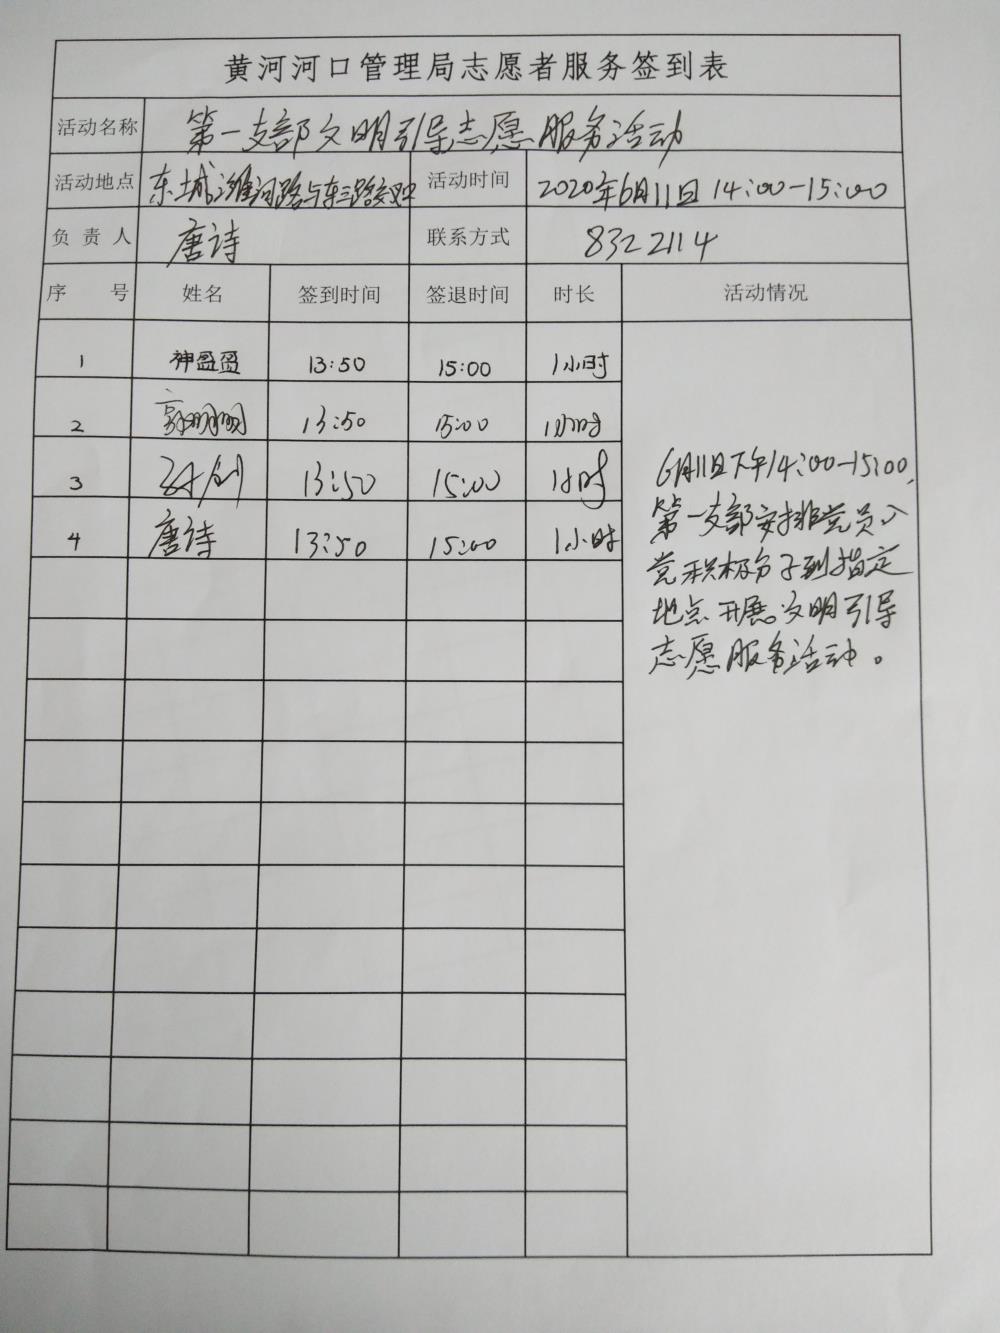 黄河河口管理局志愿者服务签到表
活动名称 第一支部文明引导志愿服务活动
活动地点 东城潍河路与东三路交叉口 活动时间 2020年6月11日 14:00-15:00
负责人 唐诗 联系方式 8322114
序号 姓名 签到时间 签退时间 时长 活动情况
1 神盈盈 13:50 15:00 1小时
2 郭明明 13:50 15:00 1小时
3 13:50 15:00 1小时
4 唐诗 13:50 15:00 1小时
6月11日下午14:00-15:00,
第一支部安排党员入
党积极分子到指定
地点开展文明引导
志愿服务活动。